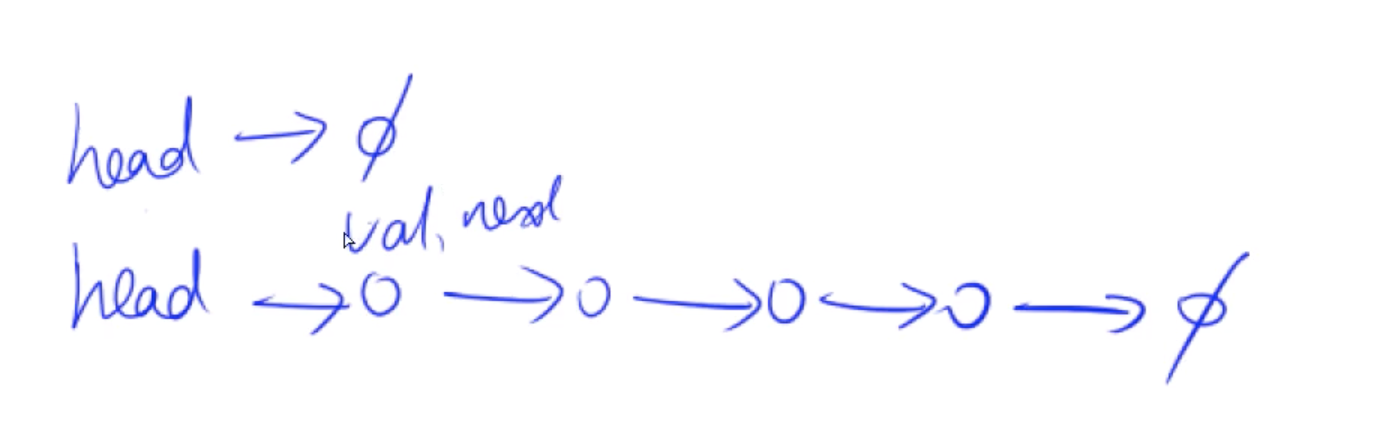 head → ∅
val, next
head → O → O → O → O → ∅